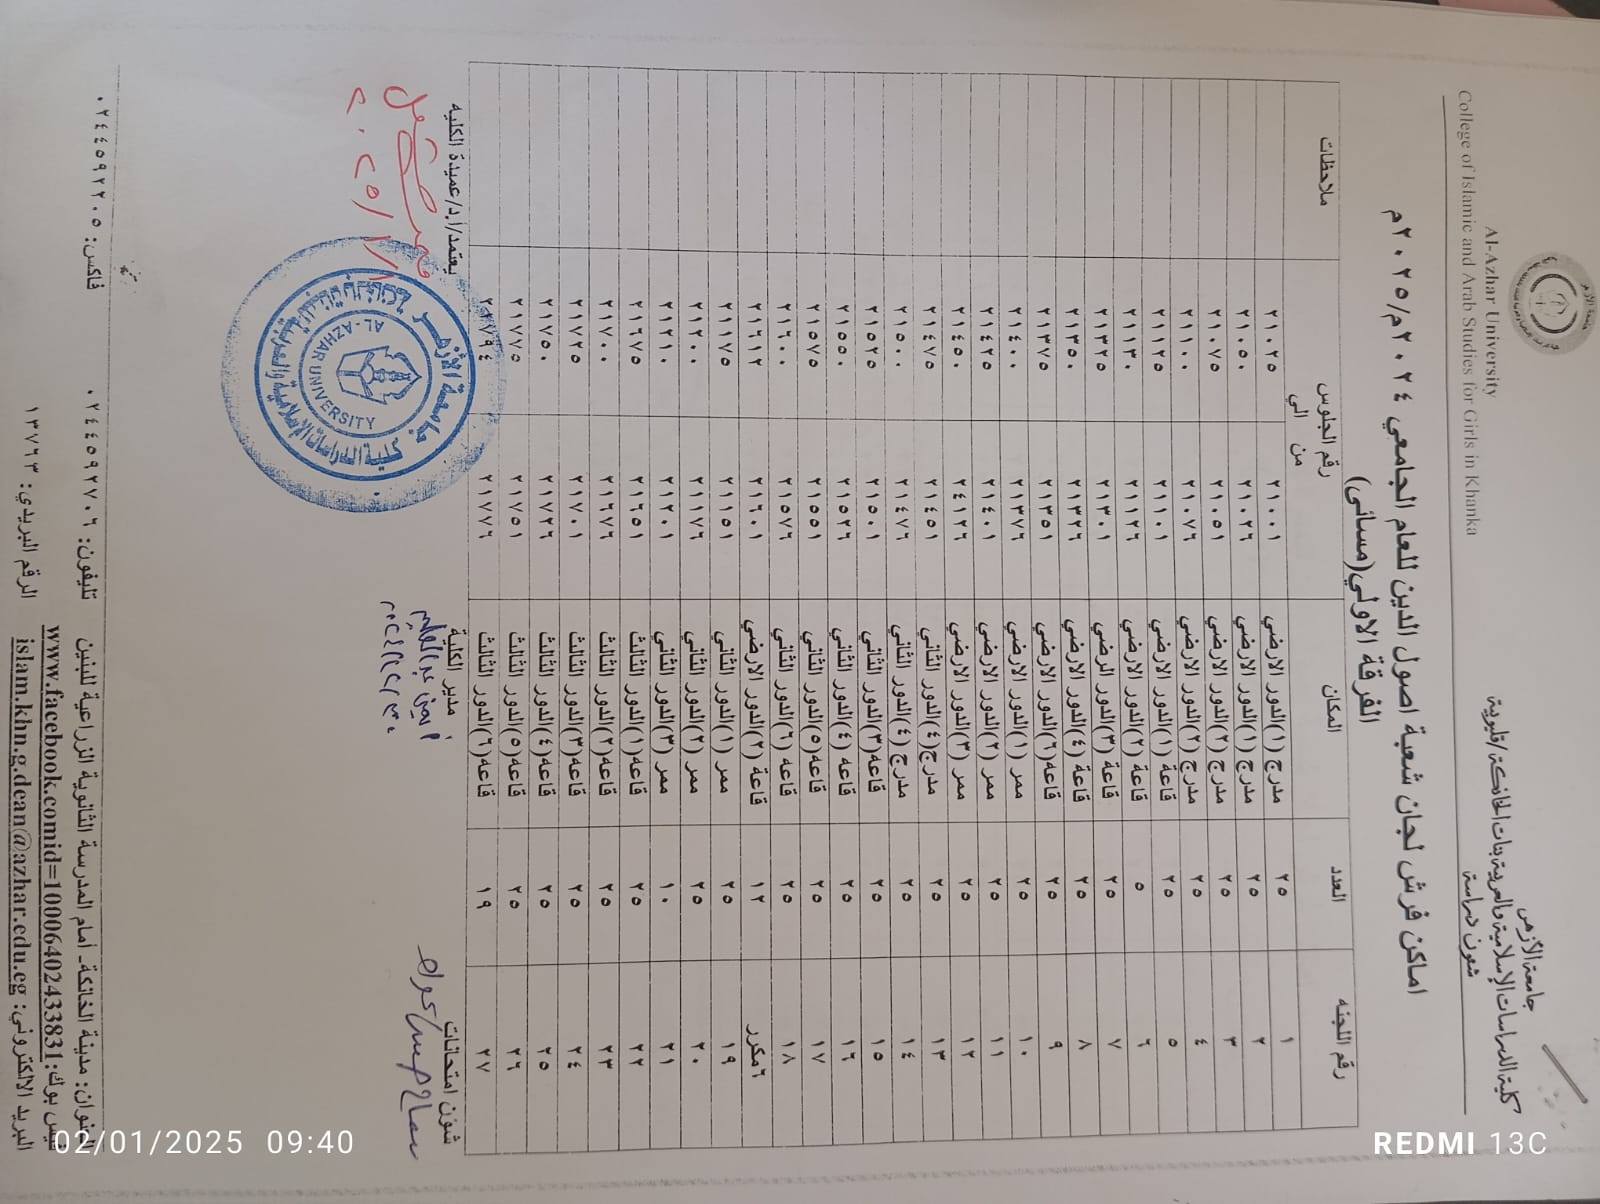 جامعة الأزهر
كلية الدراسات الإسلامية والعربية بنات الخانكة/قليوبية
شئون دراسة
Al-Azhar University
College of Islamic and Arab Studies for Girls in Khanka
اماكن فرش لجان شعبة اصول الدين للعام الجامعي ٢٠٢٤م/٢٠٢٥م
الفرقة الاولي(مسائى)
رقم اللجنه العدد المكان رقم الجلوس ملاحظات
من الي
١ ٢٥ مدرج (١)الدور الارضي ٢١٠٠١ ٢١٠٢٥
٢ ٢٥ مدرج (١)الدور الارضي ٢١٠٢٦ ٢١٠٥٠
٣ ٢٥ مدرج (٢)الدور الارضي ٢١٠٥١ ٢١٠٧٥
٤ ٢٥ مدرج (٢)الدور الارضي ٢١٠٧٦ ٢١١٠٠
٥ ٢٥ قاعة (١)الدور الارضي ٢١١٠١ ٢١١٢٥
٦ ٥ قاعة (٢)الدور الارضي ٢١١٢٦ ٢١١٣٠
٧ ٢٥ قاعة (٣)الدور الرضي ٢١٣٠١ ٢١٣٢٥
٨ ٢٥ قاعة (٤)الدور الارضي ٢١٣٢٦ ٢١٣٥٠
٩ ٢٥ قاعه(٦)الدور الارضي ٢١٣٥١ ٢١٣٧٥
١٠ ٢٥ ممر (١)الدور الارضي ٢١٣٧٦ ٢١٤٠٠
١١ ٢٥ ممر (٢)الدور الارضي ٢١٤٠١ ٢١٤٢٥
١٢ ٢٥ ممر (٣)الدور الارضي ٢٤١٢٦ ٢١٤٥٠
١٣ ٢٥ مدرج(٤)الدور الثاني ٢١٤٥١ ٢١٤٧٥
١٤ ٢٥ مدرج (٤)الدور الثاني ٢١٤٧٦ ٢١٥٠٠
١٥ ٢٥ قاعه(٣)الدور الثاني ٢١٥٠١ ٢١٥٢٥
١٦ ٢٥ قاعه (٤)الدور الثاني ٢١٥٢٦ ٢١٥٥٠
١٧ ٢٥ قاعه(٥)الدور الثاني ٢١٥٥١ ٢١٥٧٥
١٨ ٢٥ قاعه (٦)الدور الثاني ٢١٥٧٦ ٢١٦٠٠
٦مكرر ١٢ قاعة (٢)الدور الارضي ٢١٦٠١ ٢١٦١٢
١٩ ٢٥ ممر (١)الدور الثاني ٢١١٥١ ٢١١٧٥
٢٠ ٢٥ ممر (٢)الدور الثاني ٢١١٧٦ ٢١٢٠٠
٢١ ١٠ ممر (٣)الدور الثاني ٢١٢٠١ ٢١٢١٠
٢٢ ٢٥ قاعه(١)الدور الثالث ٢١٦٥١ ٢١٦٧٥
٢٣ ٢٥ قاعه(٢)الدور الثالث ٢١٦٧٦ ٢١٧٠٠
٢٤ ٢٥ قاعه(٣)الدور الثالث ٢١٧٠١ ٢١٧٢٥
٢٥ ٢٥ قاعه(٤)الدور الثالث ٢١٧٢٦ ٢١٧٥٠
٢٦ ٢٥ قاعه(٥)الدور الثالث ٢١٧٥١ ٢١٧٧٥
٢٧ ١٩ قاعه(٦)الدور الثالث ٢١٧٧٦ ٢١٧٩٤
شئون امتحانات مدير الكلية يعتمد/أ.د/عميدة الكلية
جامعة الأزهر
AL-AZHAR UNIVERSITY
العنوان: مدينة الخانكة- أمام المدرسة الثانوية الزراعية للبنين تليفون: ٠٢٤٤٥٩٢٧٠٦ فاكس: ٠٢٤٤٥٩٢٢٠٥
فيس بوك: www.facebook.comid=100064024333831
البريد الالكتروني: islam.khn.g.dean@azhar.edu.eg الرقم البريدي: ١٣٧٦٣
02/01/2025 09:40
REDMI 13C